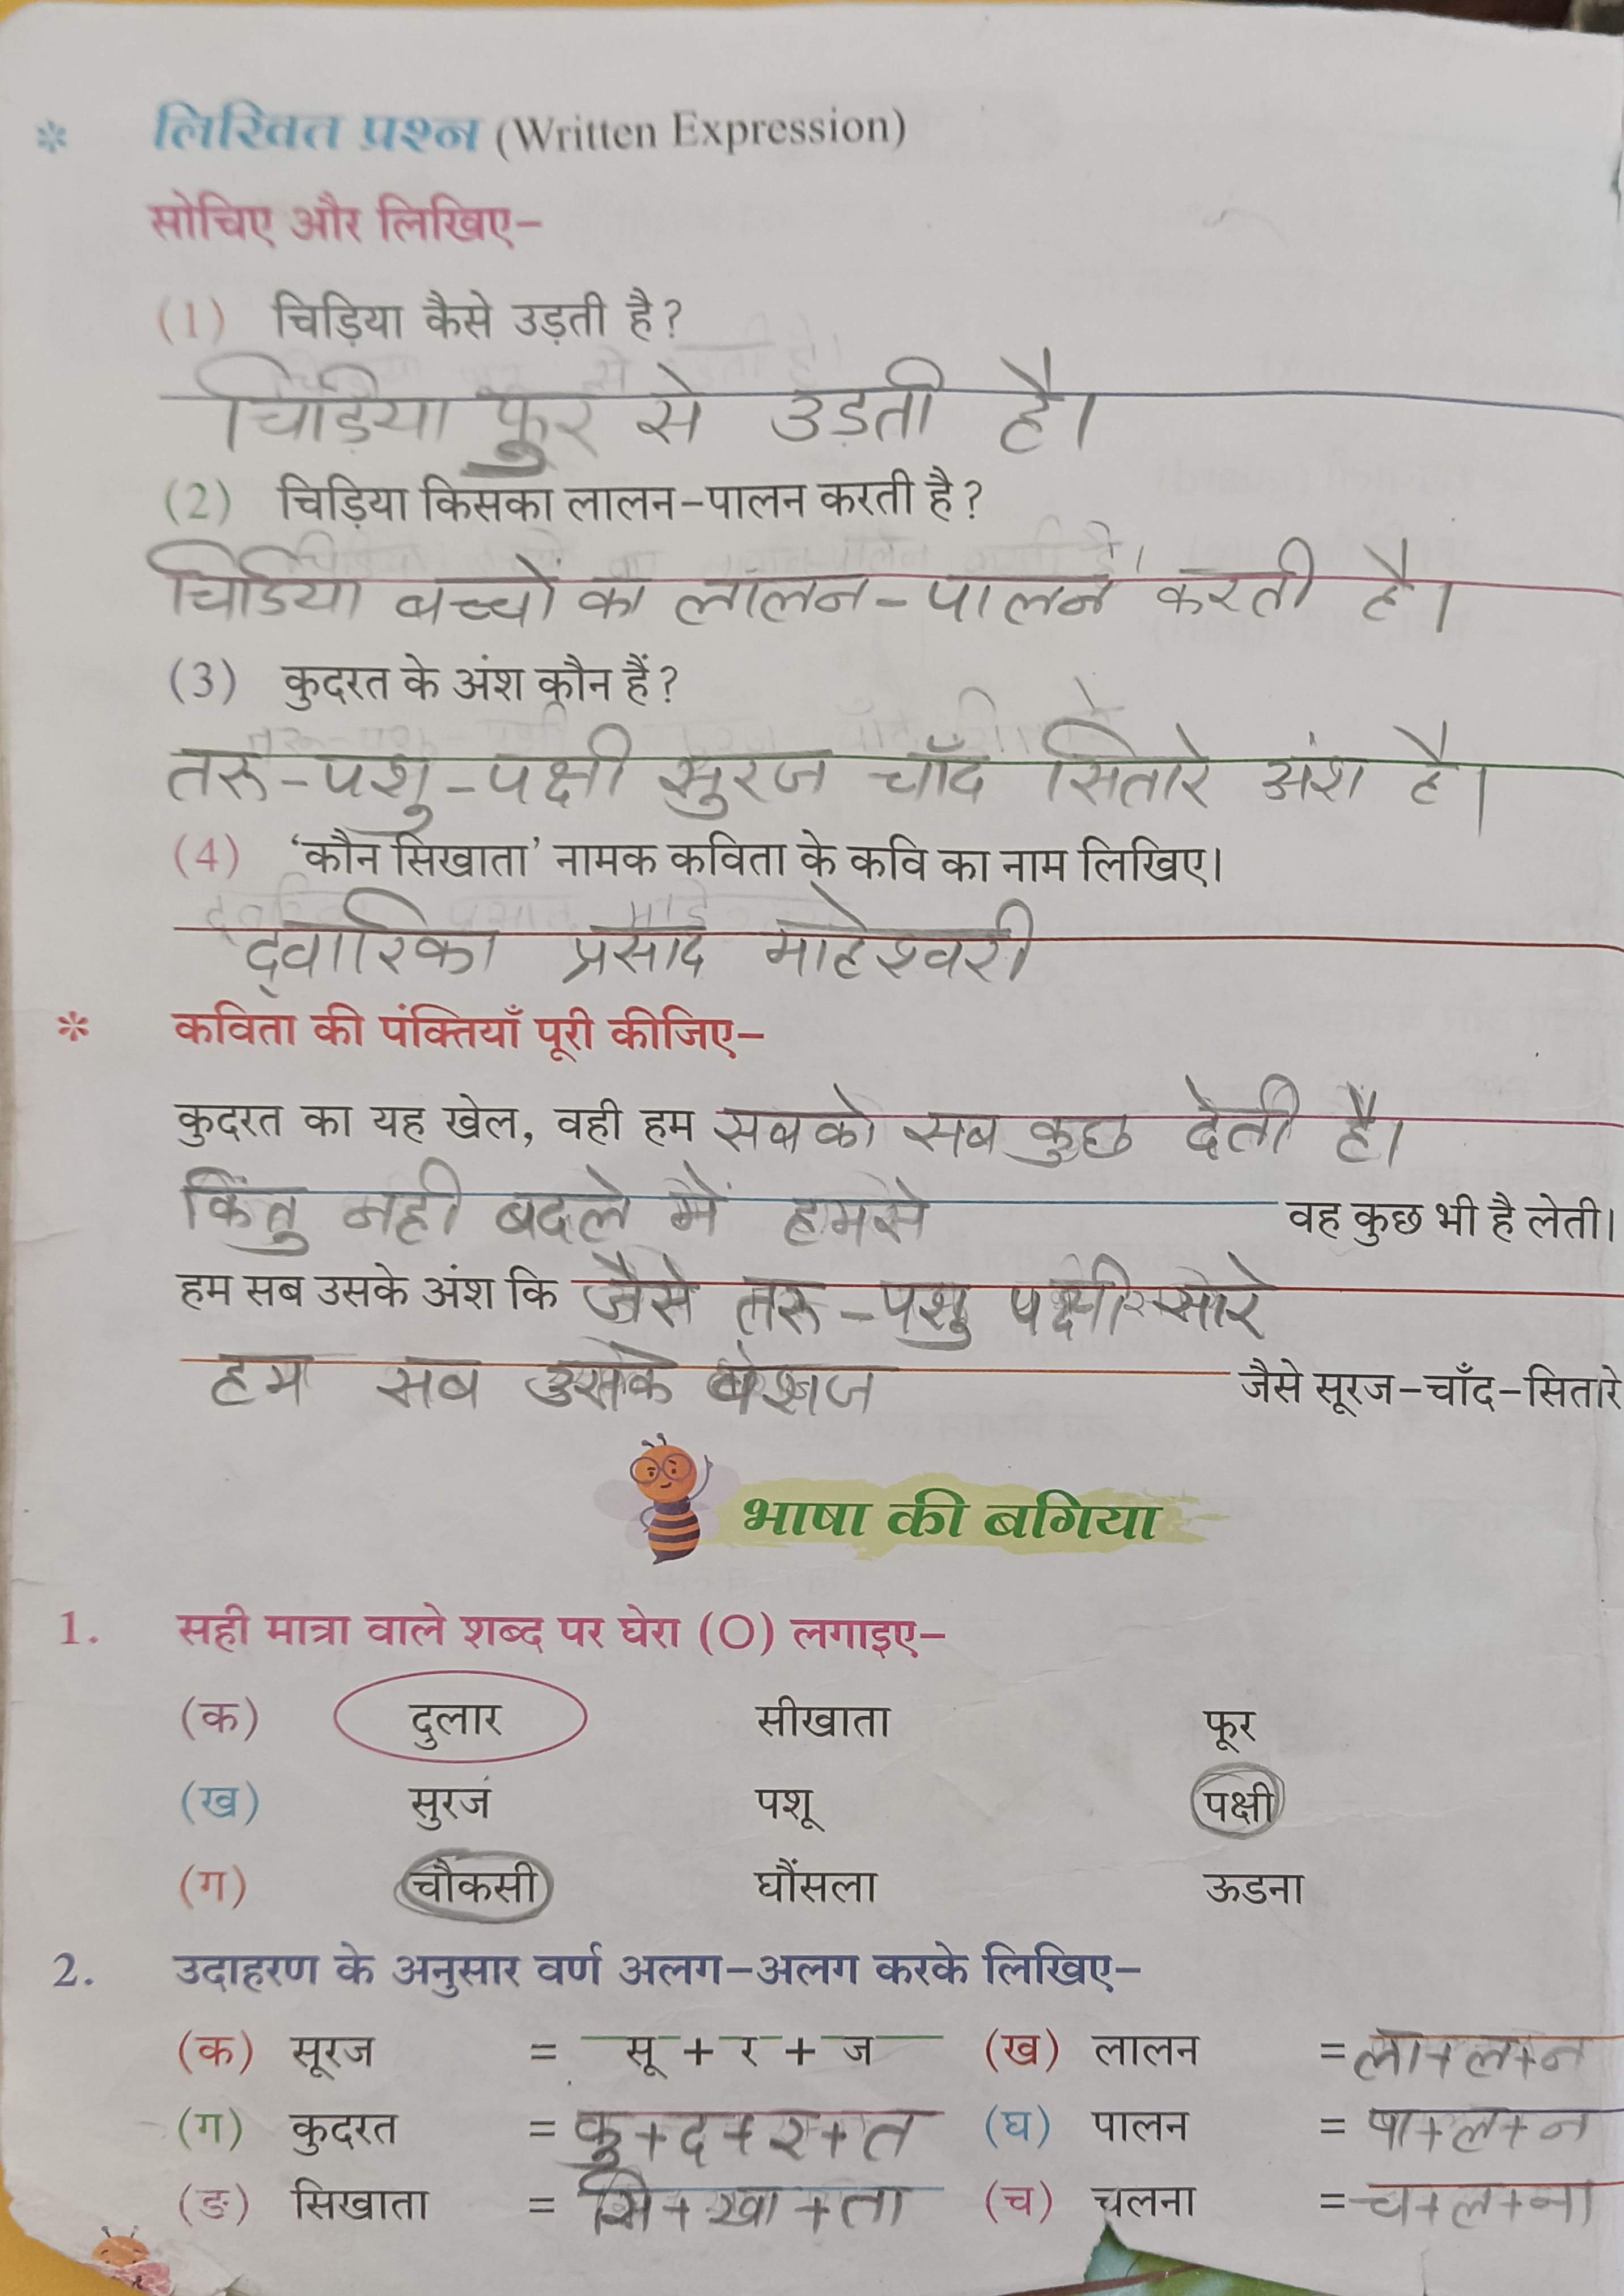 * लिखित प्रश्न (Written Expression)
सोचिए और लिखिए-
(1) चिड़िया कैसे उड़ती है?
चिड़िया फुर से उड़ती है।
(2) चिड़िया किसका लालन-पालन करती है?
चिडिया बच्चों का लालन-पालन करती है।
(3) कुदरत के अंश कौन हैं?
तरू-पशु-पक्षी सुरज चाँद सितारे अंश है।
(4) 'कौन सिखाता' नामक कविता के कवि का नाम लिखिए।
द्वारिका प्रसाद माहेश्वरी
* कविता की पंक्तियाँ पूरी कीजिए-
कुदरत का यह खेल, वही हम सबको सब कुछ देती है।
किंतु नही बदले में हमसे वह कुछ भी है लेती।
हम सब उसके अंश कि जैसे तरू-पशु पक्षी सारे
हम सब उसके जैसे सूरज-चाँद-सितारे
भाषा की बगिया
1. सही मात्रा वाले शब्द पर घेरा (O) लगाइए-
(क) दुलार सीखाता फूर
(ख) सुरज पशू पक्षी
(ग) चौकसी घौंसला ऊडना
2. उदाहरण के अनुसार वर्ण अलग-अलग करके लिखिए-
(क) सूरज = सू + र + ज (ख) लालन = ला+ल+न
(ग) कुदरत = कु+द+र+त (घ) पालन = पा+ल+न
(ङ) सिखाता = सि+खा+ता (च) चलना = च+ल+ना